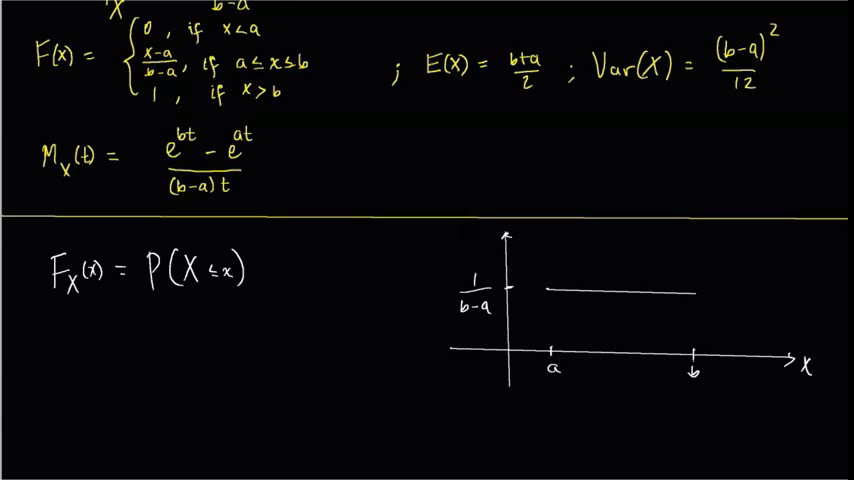 X b-a
F(x) = { 0 , if x<a
x-a/b-a , if a≤x≤b ; E(X) = b+a/2 ; Var(X) = (b-a)²/12
1 , if x>b
M_X(t) = e^bt - e^at / (b-a)t
F_X(x) = P(X≤x)
1/b-a
a b X